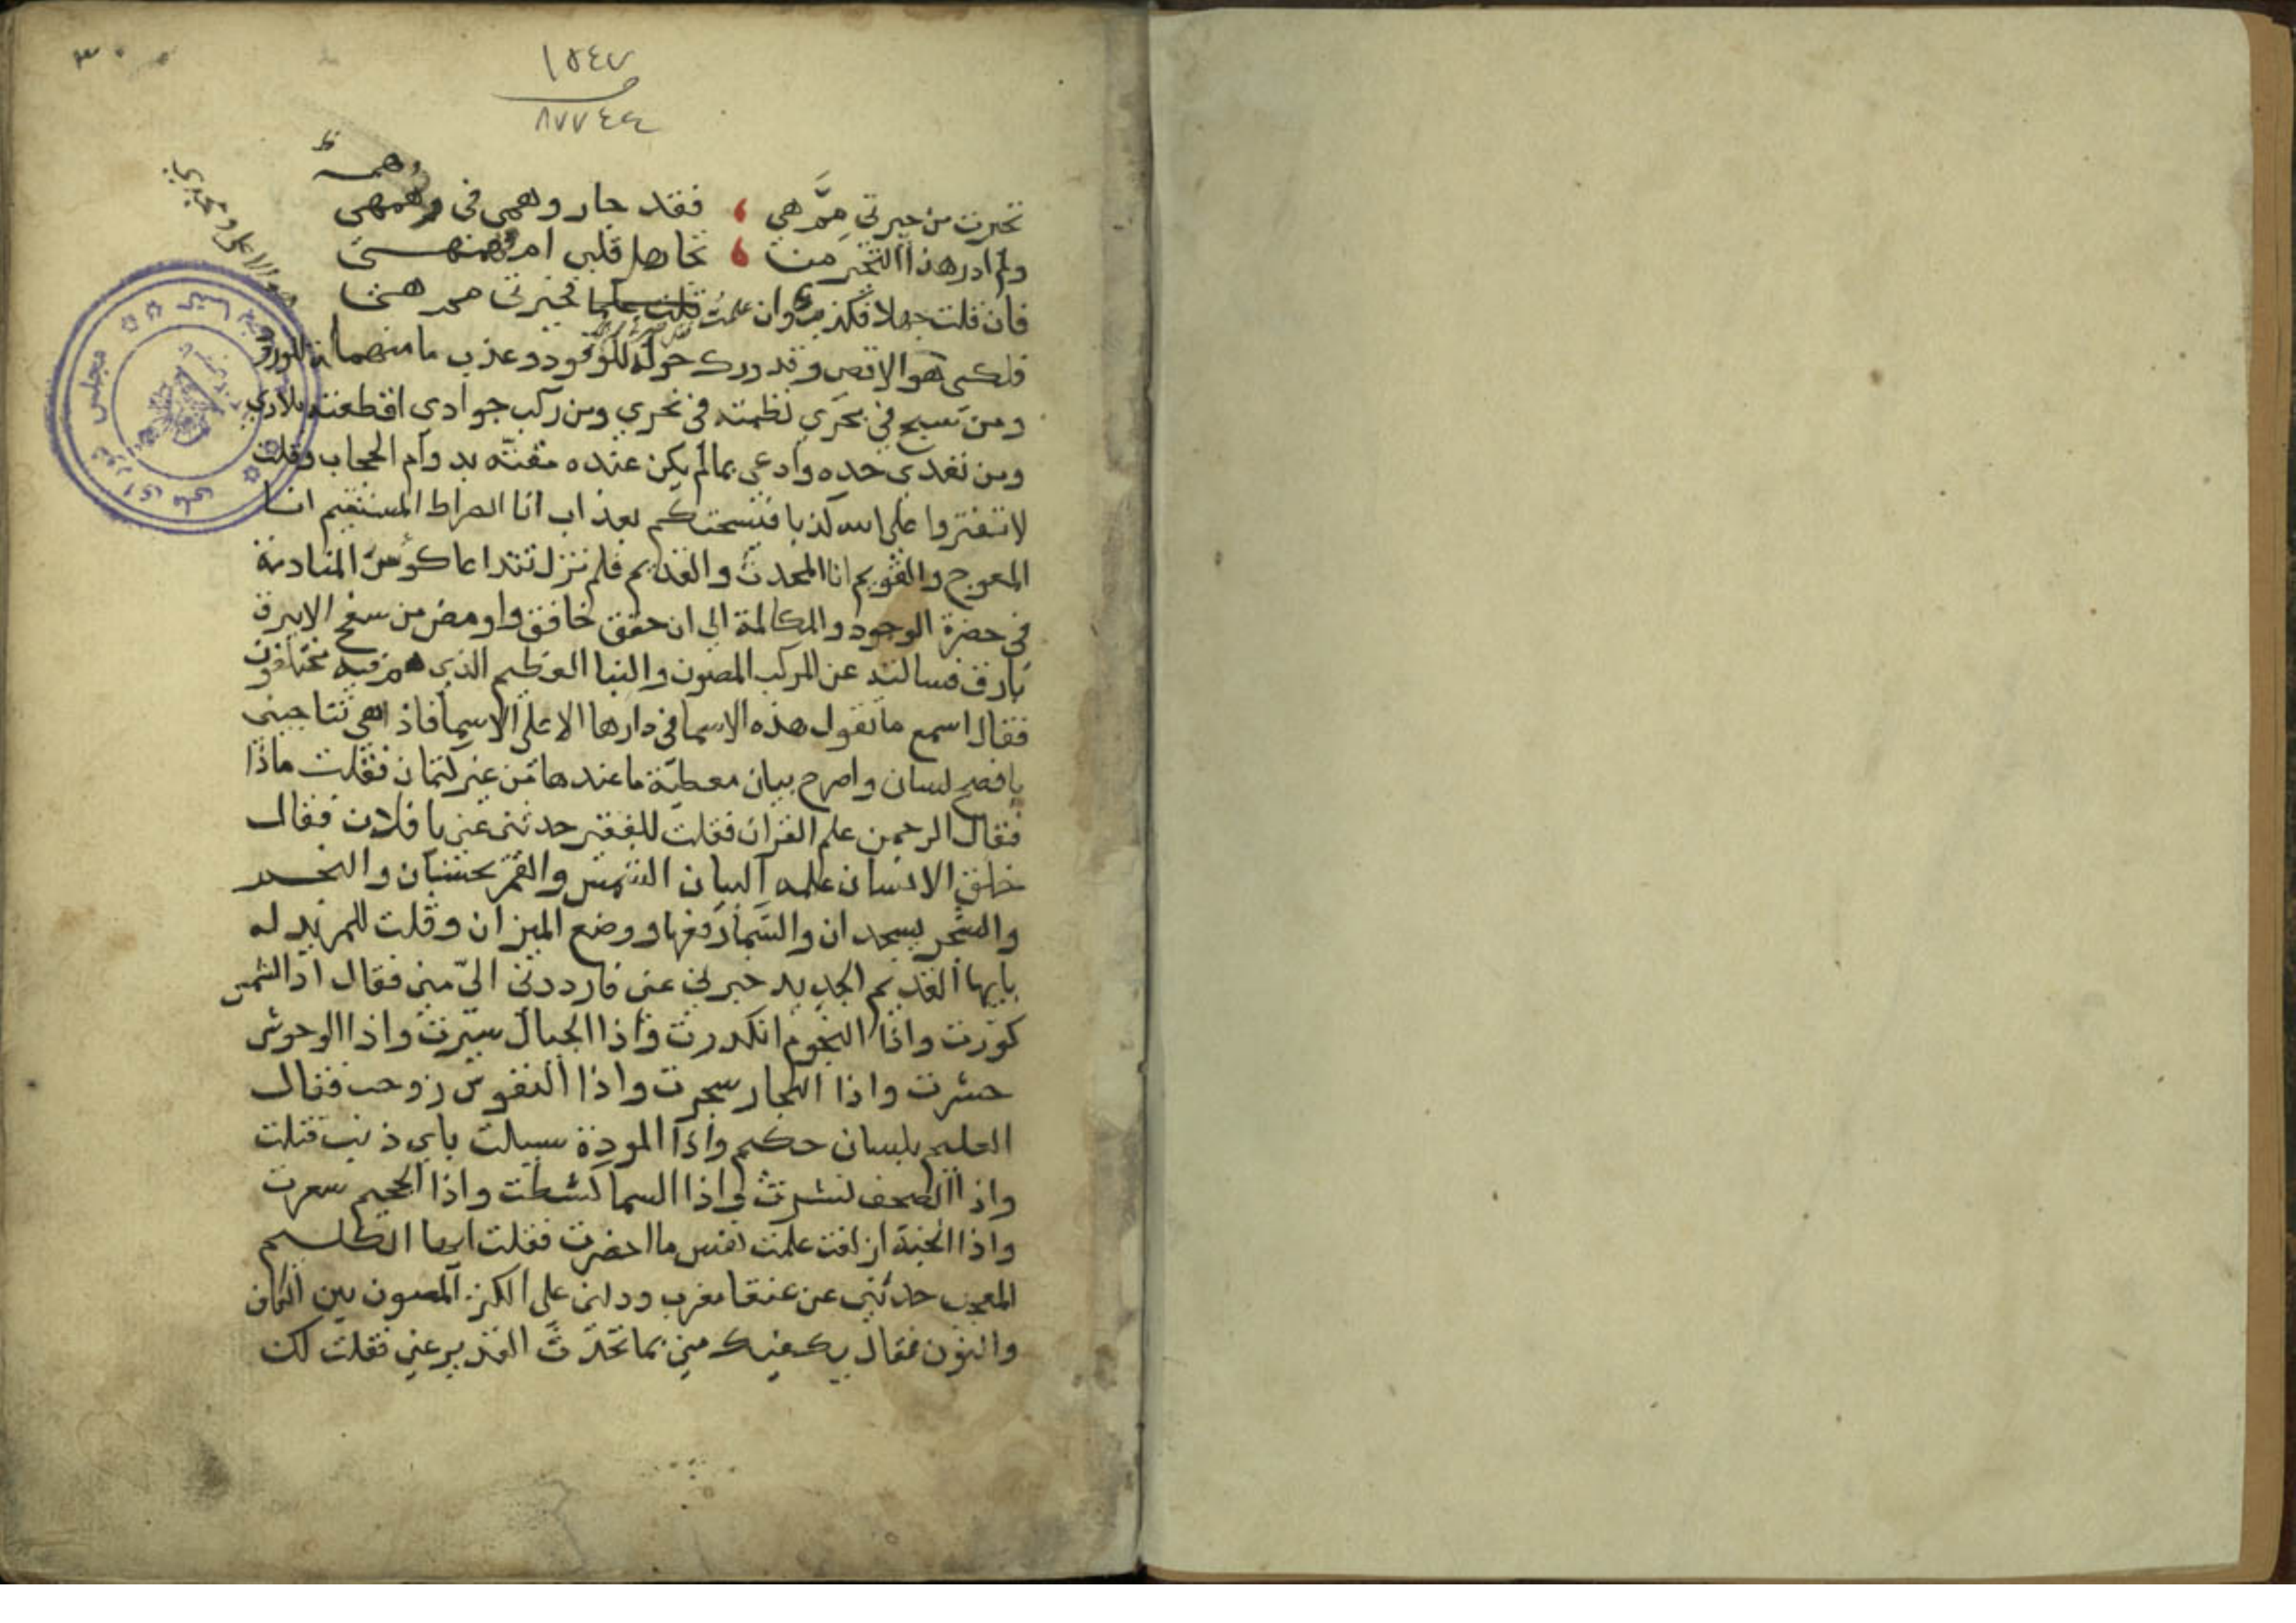 ١٥٤٧
٨٧٧٤٤
٣٠
تحيرت من حيرتي مم هي ، فقد حار وهمي في وهمهي
ولم ادر هذا التحير من ، تحارهل قلبي ام
فان قلت جهلا فكذبت وان علمت قلت علما فحيرتي
فلكي هو الاقصى وقد درك حوله للوفود وعذب ما منهما للورود
ومن سبح في بحري نظمته في نحري ومن ركب جوادي اقطعته بلادي
ومن تعدى حده وادعى بما لم يكن عنده مقته بدوام الحجاب وقلت
لا تفتروا على الله كذبا فيسحتكم بعذاب انا الصراط المستقيم انا
المعوج والقويم انا المحدث والقديم فلم نزل نتداعا كؤس المنادمة
في حضرة الوجود والمكالمة الى ان خفق خافق واومض من سفح الابرق
بارق فسالته عن المركب المصون والنبا العظيم الذي هم فيه مختلفون
فقال اسمع ما تقول هذه الاسما في دارها الاعلى الاسما فاذا هي تناجيني
بافصح لسان واصرح بيان معطية ما عندها من غير كتمان فقلت ماذا
فقال الرحمن علم القران فقلت للفقير حدثني عني يا فلان فقال
خلق الانسان علمه البيان الشمس والقمر بحسبان والنجم
والشجر يسجدان والسما رفعها ووضع الميزان وقلت للمريد له
يايها القديم الجديد خبرني عني فارددني الي مني فقال اذا الشمس
كورت واذا النجوم انكدرت واذا الجبال سيرت واذا الوحوش
حشرت واذا البحار سجرت واذا النفوس زوجت فقال
العليم بلسان حكيم واذا المودة سيلت باي ذنب قتلت
واذا الصحف نشرت واذا السما كشطت واذا الجحيم سعرت
واذا الجنة ازلفت علمت نفس ما احضرت فقلت ايها الطلسم
المعجب حدثني عن عنقا مغرب ودلني على الكنز المصون بين الكاف
والنون فقال يكفيك مني بما تحدث القدير عني فقلت لك